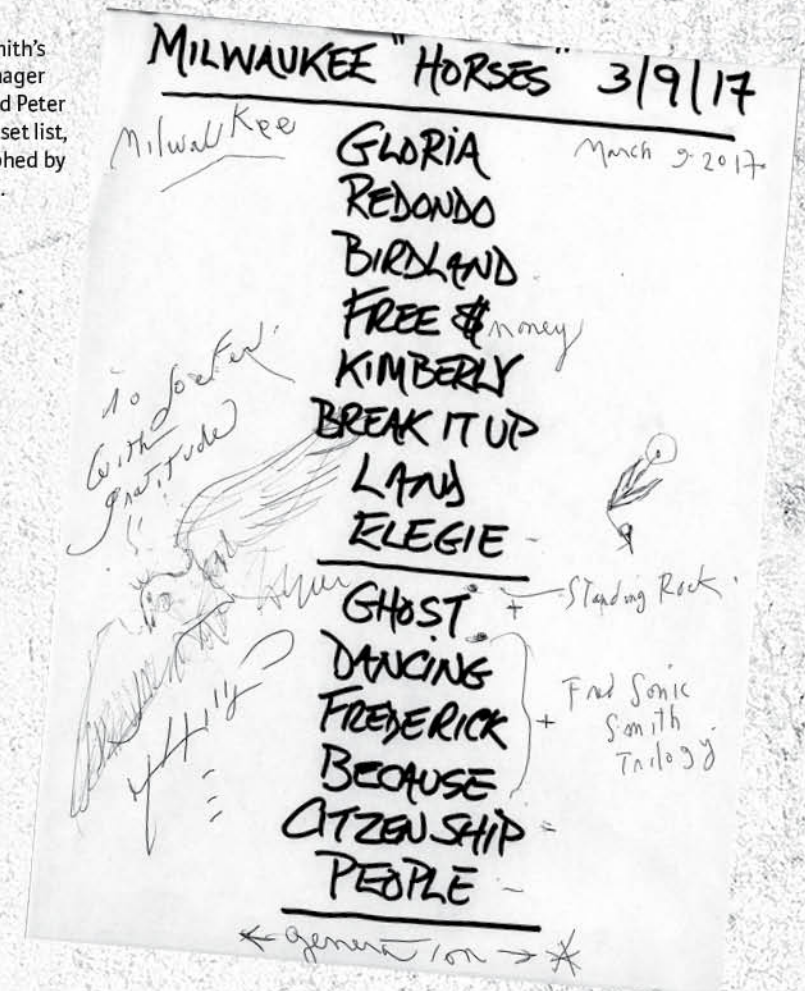 nith's
nager
d Peter
set list,
hed by
.
MILWAUKEE "HORSES" 3/9/17
Milwaukee
March 9 2017.
GLORIA
REDONDO
BIRDLAND
FREE $ money
KIMBERLY
BREAK IT UP
LAND
ELEGIE -
To
With
gratitude
GHOST + Standing Rock.
DANCING
FREDERICK
BECAUSE
+ Fred Sonic
Smith
Trilogy
CITZENSHIP
PEOPLE -
← generation →